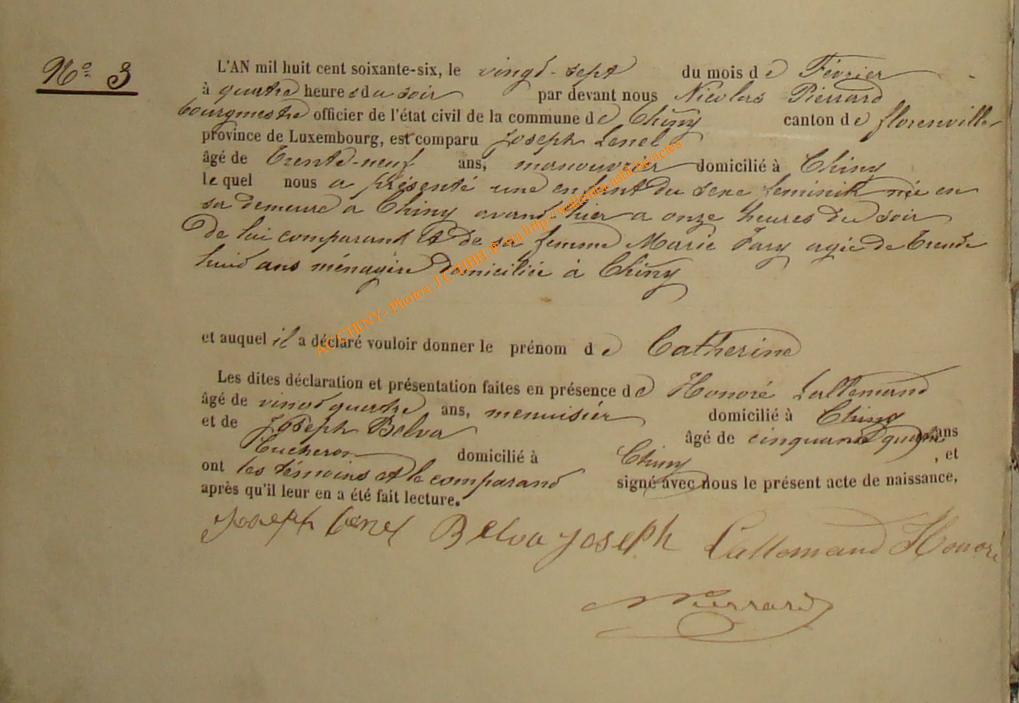 N° 3
L'AN mil huit cent soixante-six, le vingt-sept du mois de Février
à quatre heures du soir par devant nous Nicolas Pierrard
bourgmestre officier de l'état civil de la commune de Chiny canton de florenville
province de Luxembourg, est comparu Joseph Lenel
âgé de trente-neuf ans, manouvrier domicilié à Chiny
lequel nous a présenté une enfant du sexe feminin née en
sa demeure a Chiny avant hier a onze heures du soir
de lui comparant et de sa femme Marie Jary agée de trente
huit ans ménagère domiciliée à Chiny
et auquel il a déclaré vouloir donner le prénom de Catherine
Les dites déclaration et présentation faites en présence de Honoré Lallemand
âgé de vingt quatre ans, menuisier domicilié à Chiny
et de Joseph Belva âgé de cinquante quatre ans
bucheron domicilié à Chiny, et
ont les témoins et le comparant signé avec nous le présent acte de naissance,
après qu'il leur en a été fait lecture.
Joseph Lenel Belva Joseph Lallemand Honoré
NPierrard